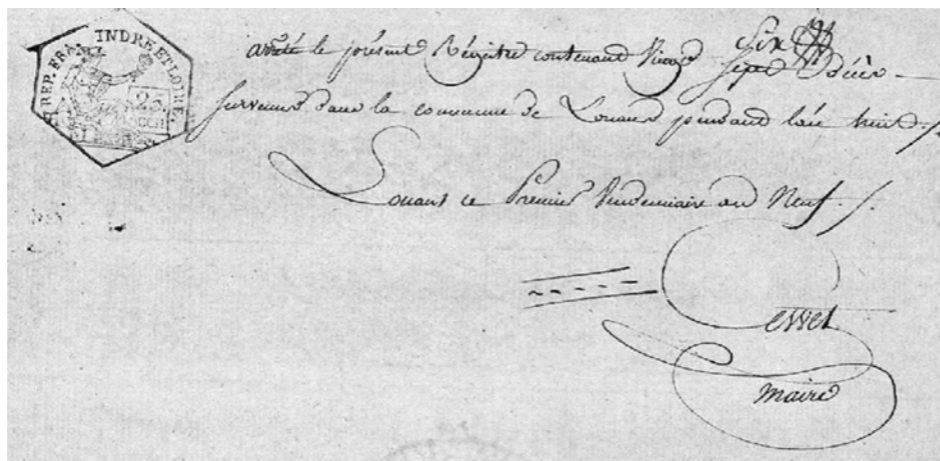 REP. FRA. INDRE ET LOIRE.
Six
arrêté le présent Régistre contenant Vingt sept Décès
survenus dans la commune de Louans pendant l'an huit ./.
Louans ce Premier Vendemiaire an Neuf ./.
maire